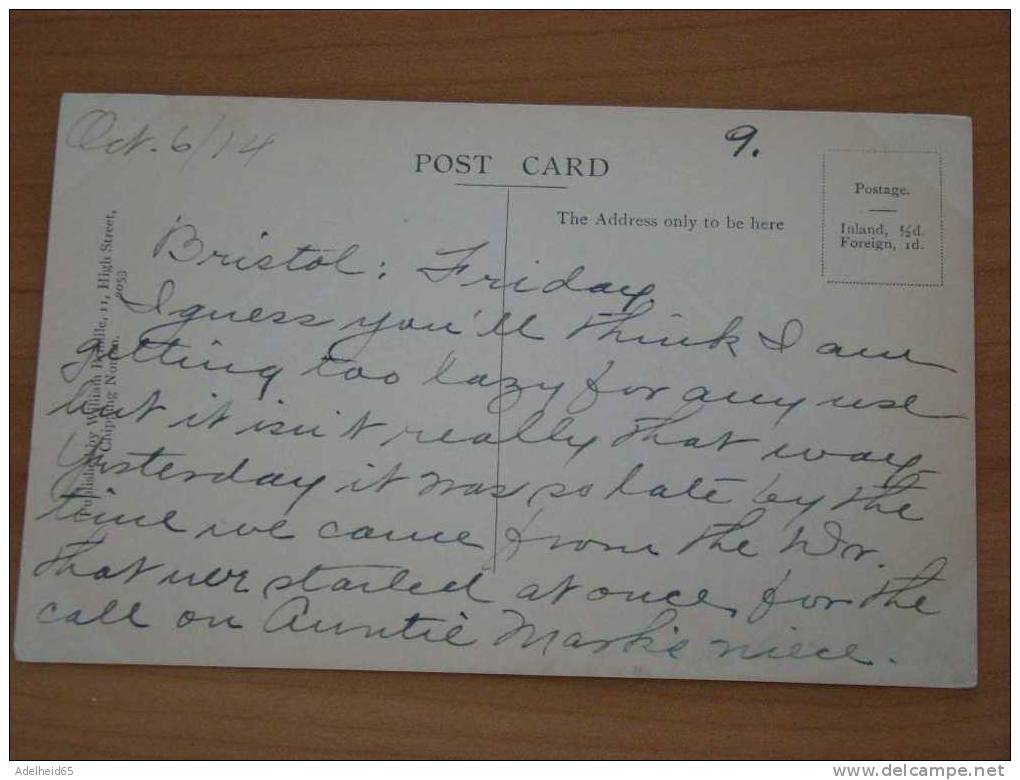 Oct. 6/14
9.
POST CARD
The Address only to be here
Postage.
Inland, ½d.
Foreign, 1d.
Bristol: Friday,
I guess you'll think I am
getting too lazy for any use
but it isn't really that way.
Yesterday it was so late by the
time we came from the Dr.
that we started at once for the
call on Auntie Mark's niece.
Published by William 11, High Street,
Chipping Norton. 2053
Adelheid65
www.delcampe.net